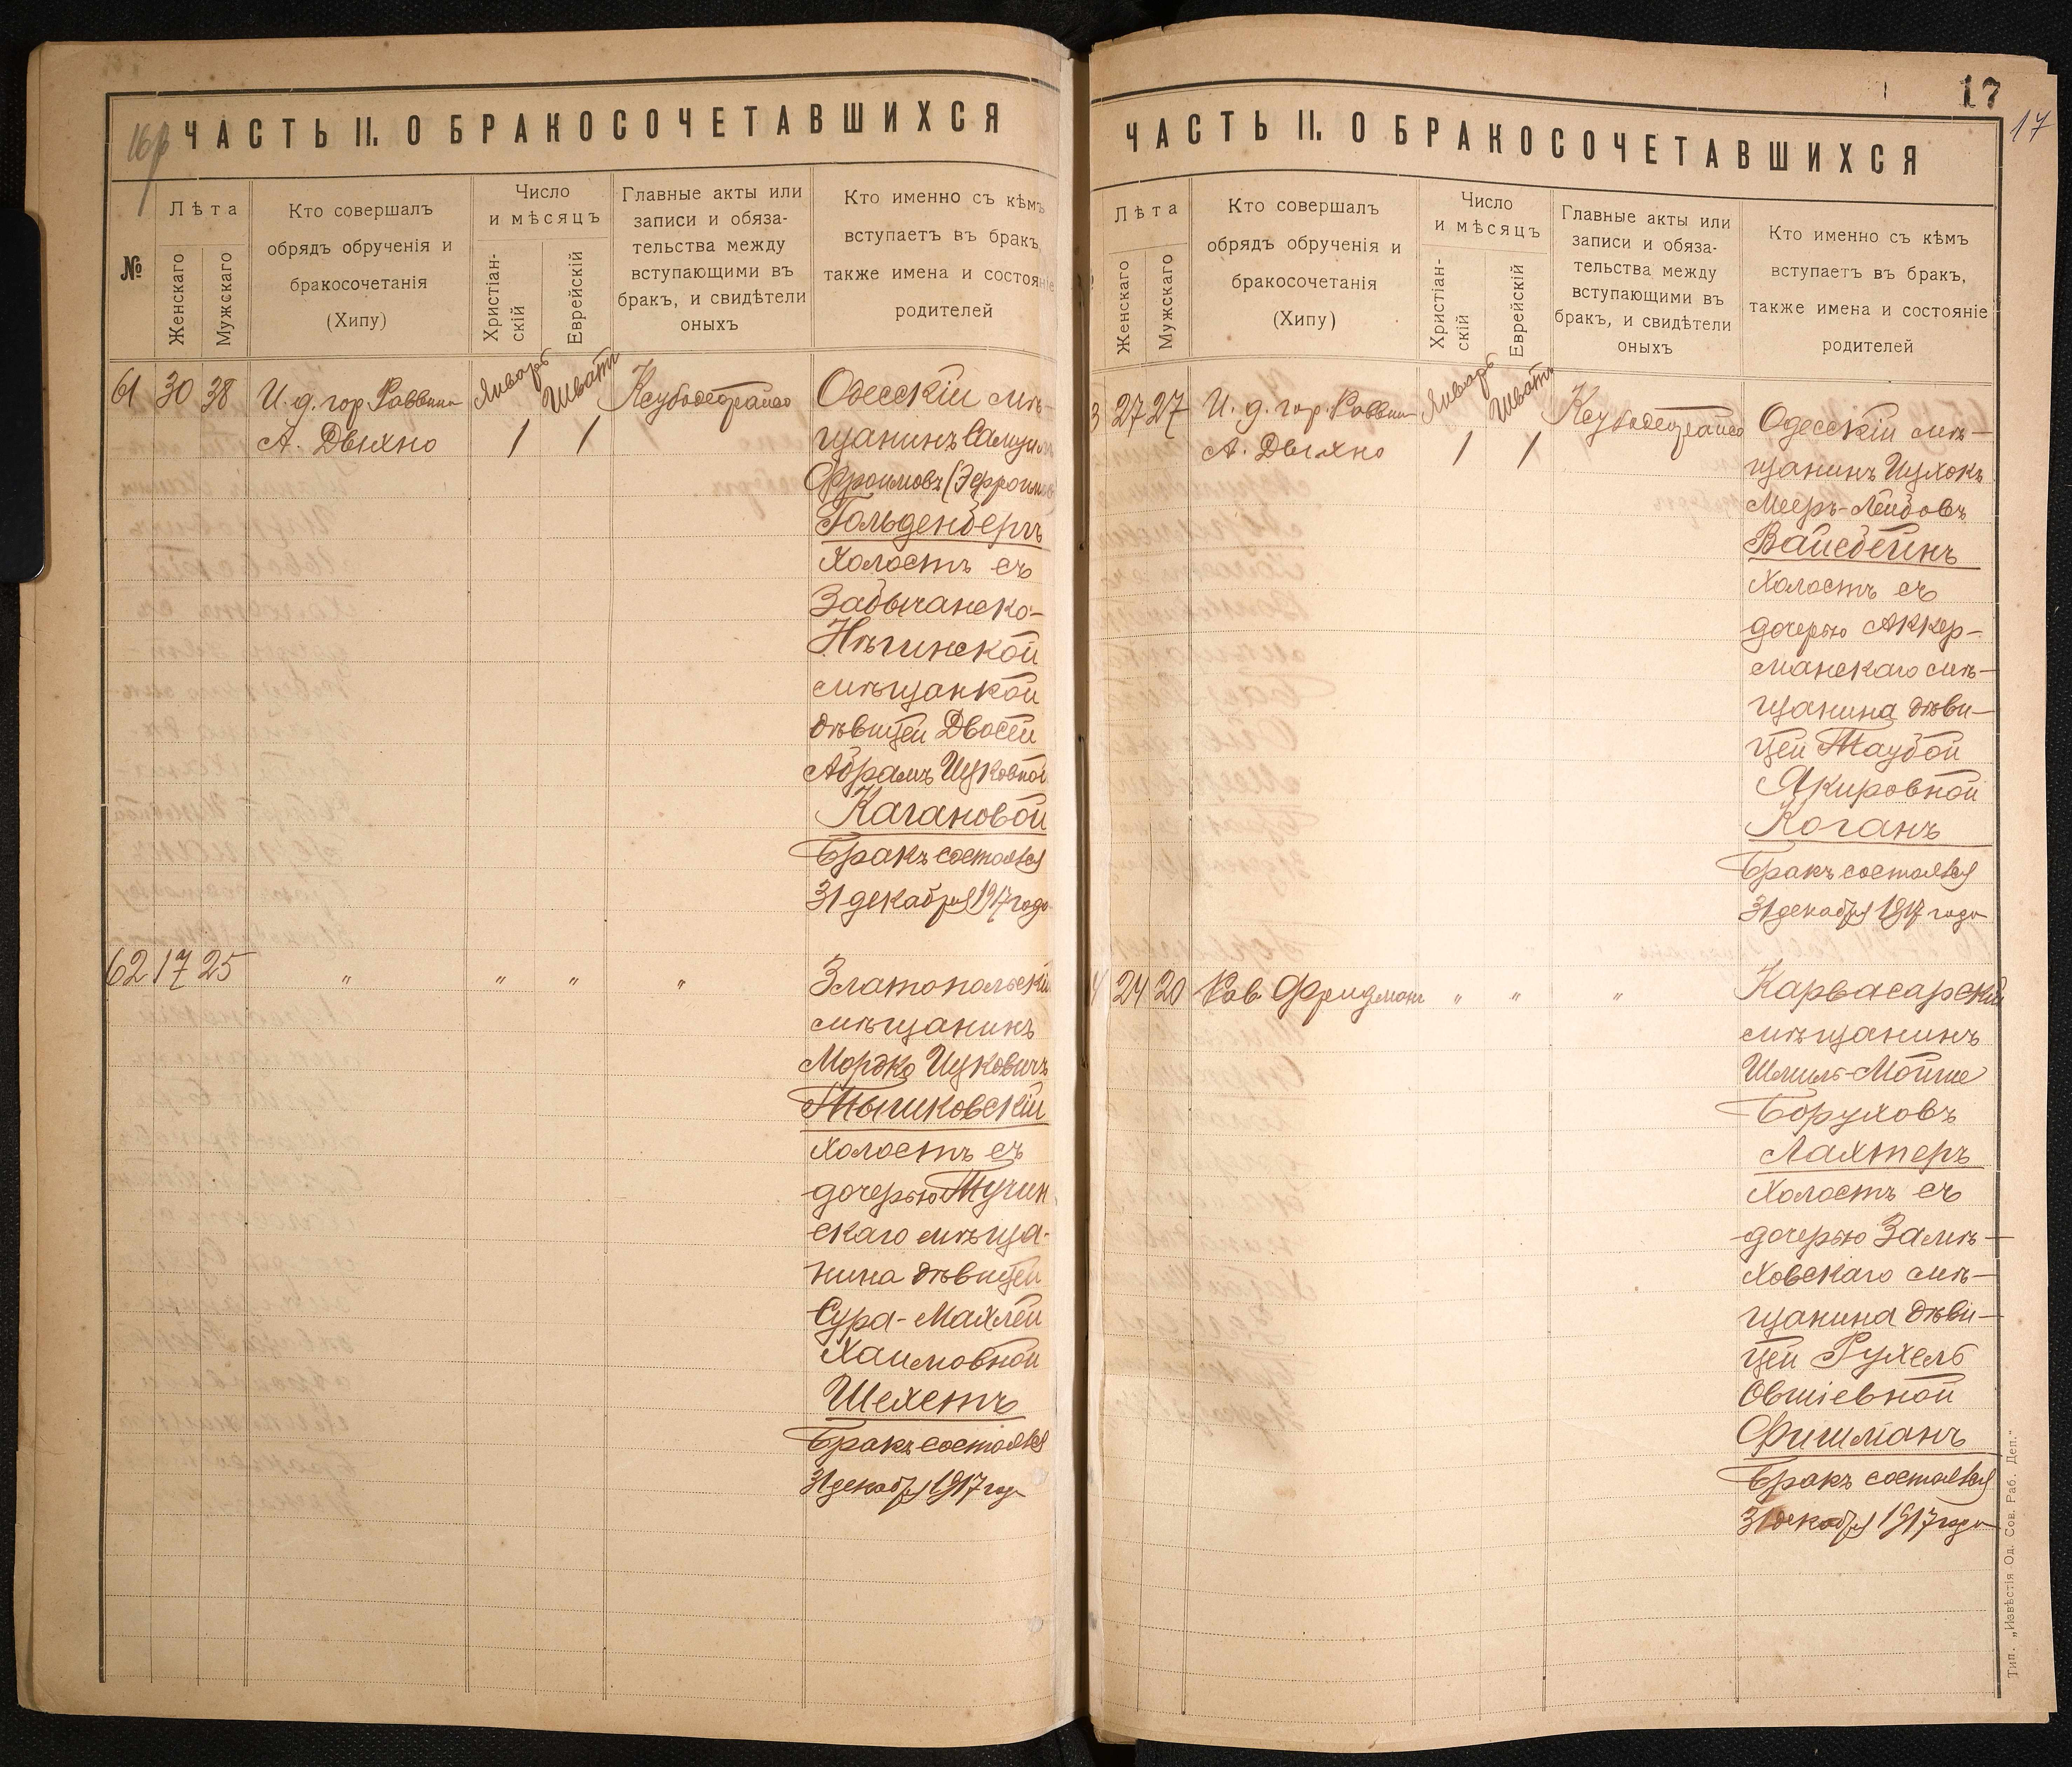 16
ЧАСТЬ II. О БРАКОСОЧЕТАВШИХСЯ
№
Лѣта
Женскаго
Мужскаго
Кто совершалъ
обрядъ обрученія и
бракосочетанія
(Хипу)
Число
и мѣсяцъ
Христіан-
скій
Еврейскій
Главные акты или
записи и обяза-
тельства между
вступающими въ
бракъ, и свидѣтели
оныхъ
Кто именно съ кѣмъ
вступаетъ въ бракъ,
также имена и состояніе
родителей
61 30 38 И. д. гор. Раввина Январь Шватъ Ксубодеграйсо Одесскій мѣ-
А. Двыхно 1 1 щанинъ Самуил
Фроимовъ (Эфроимов
Гольденбергъ
холостъ съ
Забычанско-
Нѣгинской
мѣщанкой
дѣвицей Двосей
Абрамъ Ицковной
Кагановой
Бракъ состоялся
31 декабря 1917 года
62 17 25 " " " " Златопольскій
мѣщанинъ
Мордко Ицковичъ
Тышковскій
холостъ съ
дочерью Тучин
скаго мѣща-
нина дѣвицей
Сура-Махлей
Хаимовной
Шехетъ
Бракъ состоялся
31 декабря 1917 года
17
17
ЧАСТЬ II. О БРАКОСОЧЕТАВШИХСЯ
Лѣта
Женскаго
Мужскаго
Кто совершалъ
обрядъ обрученія и
бракосочетанія
(Хипу)
Число
и мѣсяцъ
Христіан-
скій
Еврейскій
Главные акты или
записи и обяза-
тельства между
вступающими въ
бракъ, и свидѣтели
оныхъ
Кто именно съ кѣмъ
вступаетъ въ бракъ,
также имена и состояніе
родителей
3 27 27 И. д. гор. Раввина Январь Шватъ Ксубодеграйсо Одесскій мѣ-
А. Двыхно 1 1 щанинъ Ицхокъ
Мееръ-Лейбовъ
Вайсбейнъ
холостъ съ
дочерью Аккер-
манскаго мѣ-
щанина дѣви-
цей Таубой
Якировной
Коганъ
Бракъ состоялся
31 декабря 1917 года
4 24 20 Рав. Фридманъ " " " Карвасарскій
мѣщанинъ
Шмиль-Мойше
Боруховъ
Лахтеръ
холостъ съ
дочерью Замѣ-
ховскаго мѣ-
щанина дѣви-
цей Рухель
Овшіевной
Фишманъ
Бракъ состоялся
31 декабря 1917 года
Тип. „Извѣстія Од. Сов. Раб. Деп."